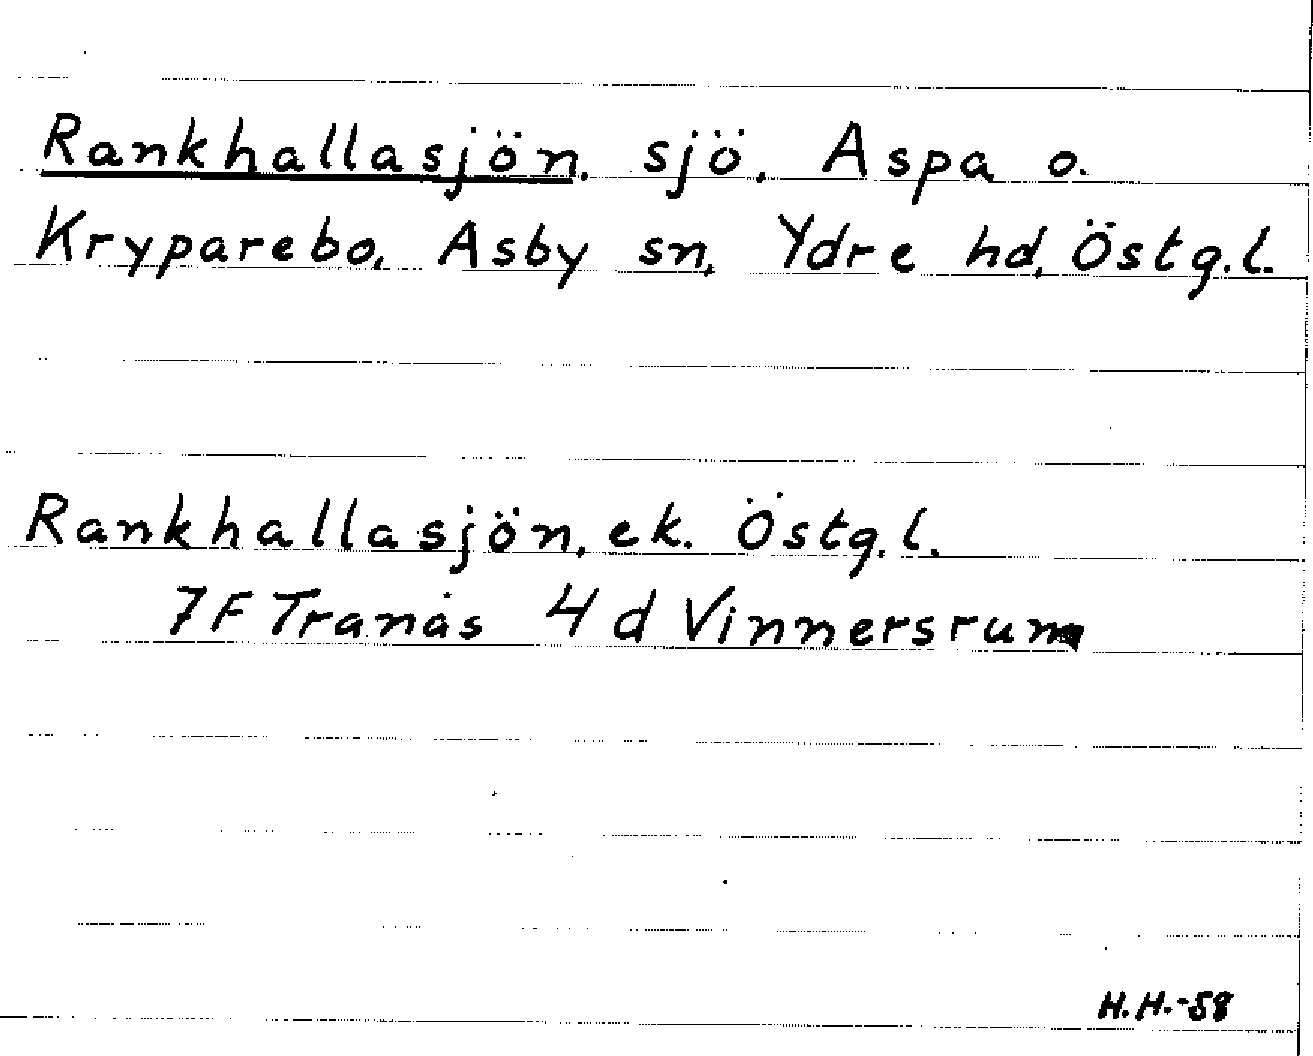 Rankhallasjön, sjö, Aspa o.
Kryparebo, Asby sn, Ydre hd, Östg.l.
Rankhallasjön, ek. Östg.l.
7F Tranås 4d Vinnersrum
H.H.-58